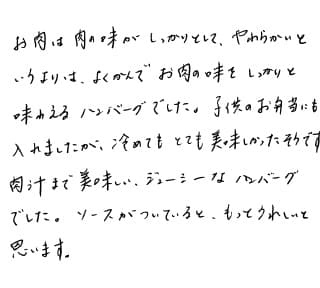 お肉は肉の味がしっかりとして、やわらかいと
いうよりは、よくかんでお肉の味をしっかりと
味わえるハンバーグでした。子供のお弁当にも
入れましたが、冷めてもとても美味しかったそうです
肉汁まで美味しい、ジューシーなハンバーグ
でした。ソースがついていると、もっとうれしいと
思います。